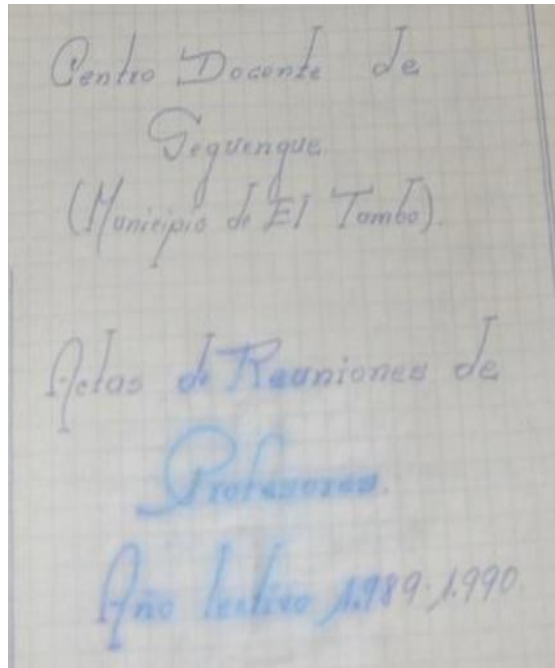 Centro Docente de
Seguengue.
(Municipio de El Tambo).
Actas de Reuniones de
Profesores.
Año lectivo 1.989-1.990